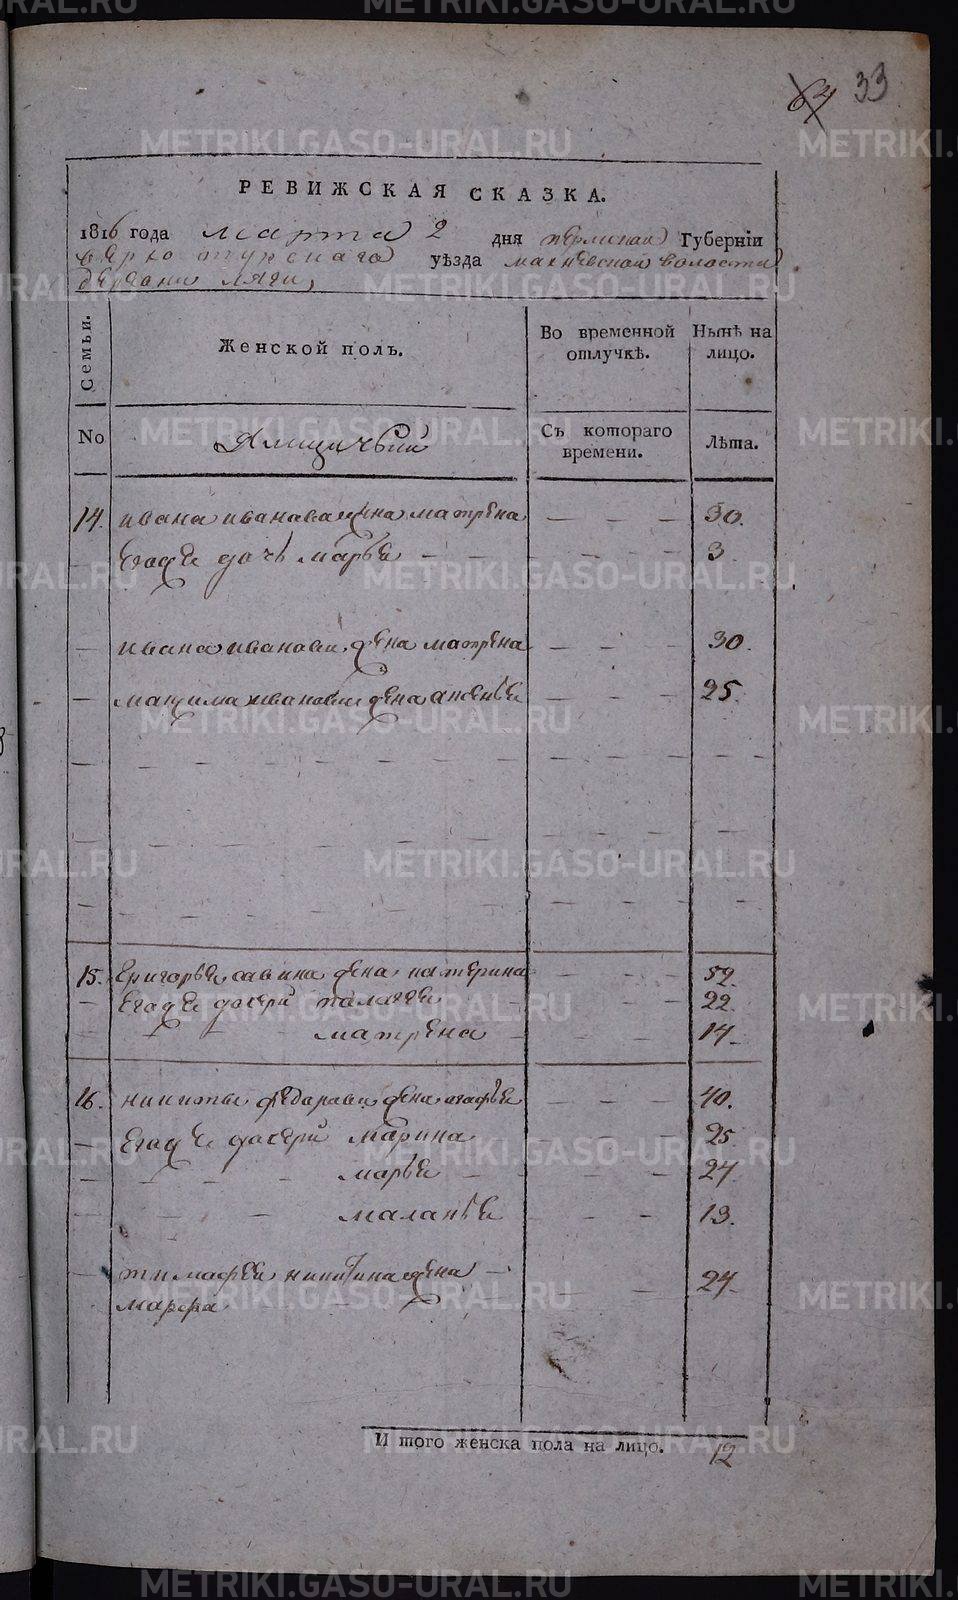 64 33
РЕВИЖСКАЯ СКАЗКА.
1816 года марта 2 дня пермской Губерніи
верхотурскаго уѣзда махневской волости
деревни ляги,
Семьи. Женской полъ. Во временной отлучкѣ. Нынѣ на лицо.
No Съ котораго времени. Лѣта.
14. ивана иванава жена матрена — — — 30.
— егоже дочь марье — — — — — 3
— ивана иванова жена матрена — — — 30.
— максима иванова жена аксенье — — — 25.
15. григорье савина жена катерина — — — 52.
— егоже дочери палагее — — — 22.
матрена — — — 14.
16. никиты федорава жена агафье — — — 40.
— егоже дочери марина — 25
— — — — марье — — — — 24.
— — — маланье — — — 13.
— тимафеи никитина жена —
марфа — — — 24.
И того женска пола на лицо. 12
METRIKI.GASO-URAL.RU